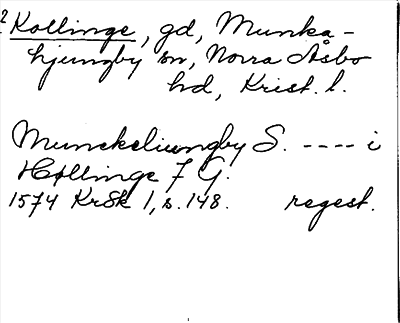 2 Kollinge, gd, Munka-
hjungby sn, Norra Åsbo
hd, Krist. l.
Munckeliungby S. ---- i
Hollinge 7 G.
1574 KrSk 1, s. 148. regest.